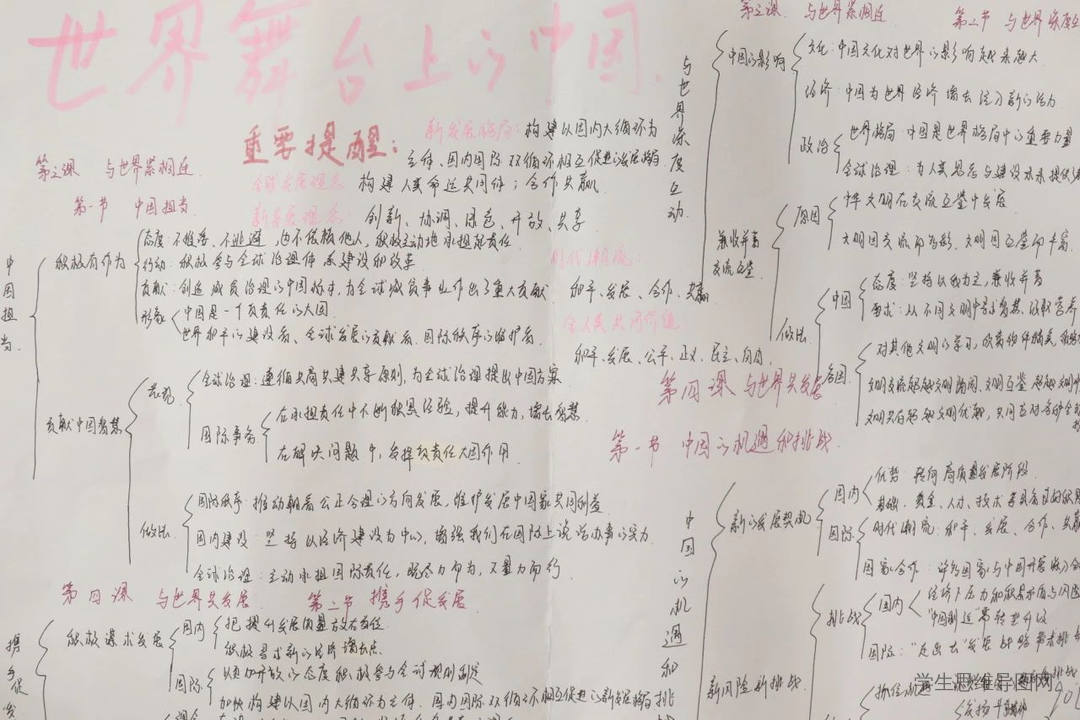 世界舞台上的中国
重要提醒：
新发展格局：构建以国内大循环为
主体、国内国际双循环相互促进的发展格局
全球发展理念 构建人类命运共同体；合作共赢
新发展理念 创新、协调、绿色、开放、共享
时代潮流：
和平、发展、合作、共赢
全人类共同价值
和平、发展、公平、正义、民主、自由
第三课 与世界紧相连
第一节 中国担当
中国担当
积极有作为
态度：不推诿、不逃避，也不依赖他人，积极主动地承担起责任
行动：积极参与全球治理体系建设和改革
贡献：创造减贫治理的中国样本，为全球减贫事业作出了重大贡献
形象
中国是一个负责任的大国
世界和平的建设者、全球发展的贡献者、国际秩序的维护者
贡献中国智慧
表现
全球治理：遵循共商共建共享原则，为全球治理提出中国方案
国际事务
在承担责任中不断积累经验，提升能力，增长智慧
在解决问题中，发挥负责任大国作用
做法
国际秩序：推动朝着公正合理的方向发展，维护发展中国家共同利益
国内建设：坚持以经济建设为中心，增强我们在国际上说话办事的实力
全球治理：主动承担国际责任，既尽力而为，又量力而行
第四课 与世界共发展 第二节 携手促发展
携手促发
积极谋求发展
国内
把提升发展的重放在首位
积极寻求新的经济增长点
国际
以更加开放的态度积极参与全球规则制定
加快构建以国内大循环为主体、国内国际双循环相互促进的新发展格局
第三课 与世界紧相连 第二节 与世界深度互
与世界深度互动
中国的影响
文化：中国文化对世界的影响越来越大
经济：中国为世界经济增长注入新的活力
政治
世界格局：中国是世界格局中的重要力量
全球治理：为人类思考与建设未来提供
兼收并蓄
交流互鉴
原因
世界文明在交流互鉴中发展
文明因交流而多彩、文明因互鉴而丰富
做法
中国
态度：坚持以我为主，兼收并蓄
要求：从不同文明中寻求智慧、汲取营养
各国
对其他文明的学习，
文明交流超越文明隔阂、文明互鉴超越文明
文明共存超越文明优越，共同应对各种全
第四课 与世界共发展
第一节 中国的机遇和挑战
中国的机遇和挑战
新的发展契机
国内
优势 转向高质量发展阶段
基础：资金、人才、技术等
国际
时代潮流：和平、发展、合作、共赢
国家合作：许多国家与中国开展
新风险新挑战
挑战
国内
经济下行压力和
“中国制造”需转型升级
国际：“走出去”发展战略
抓住机
学生思维导图网